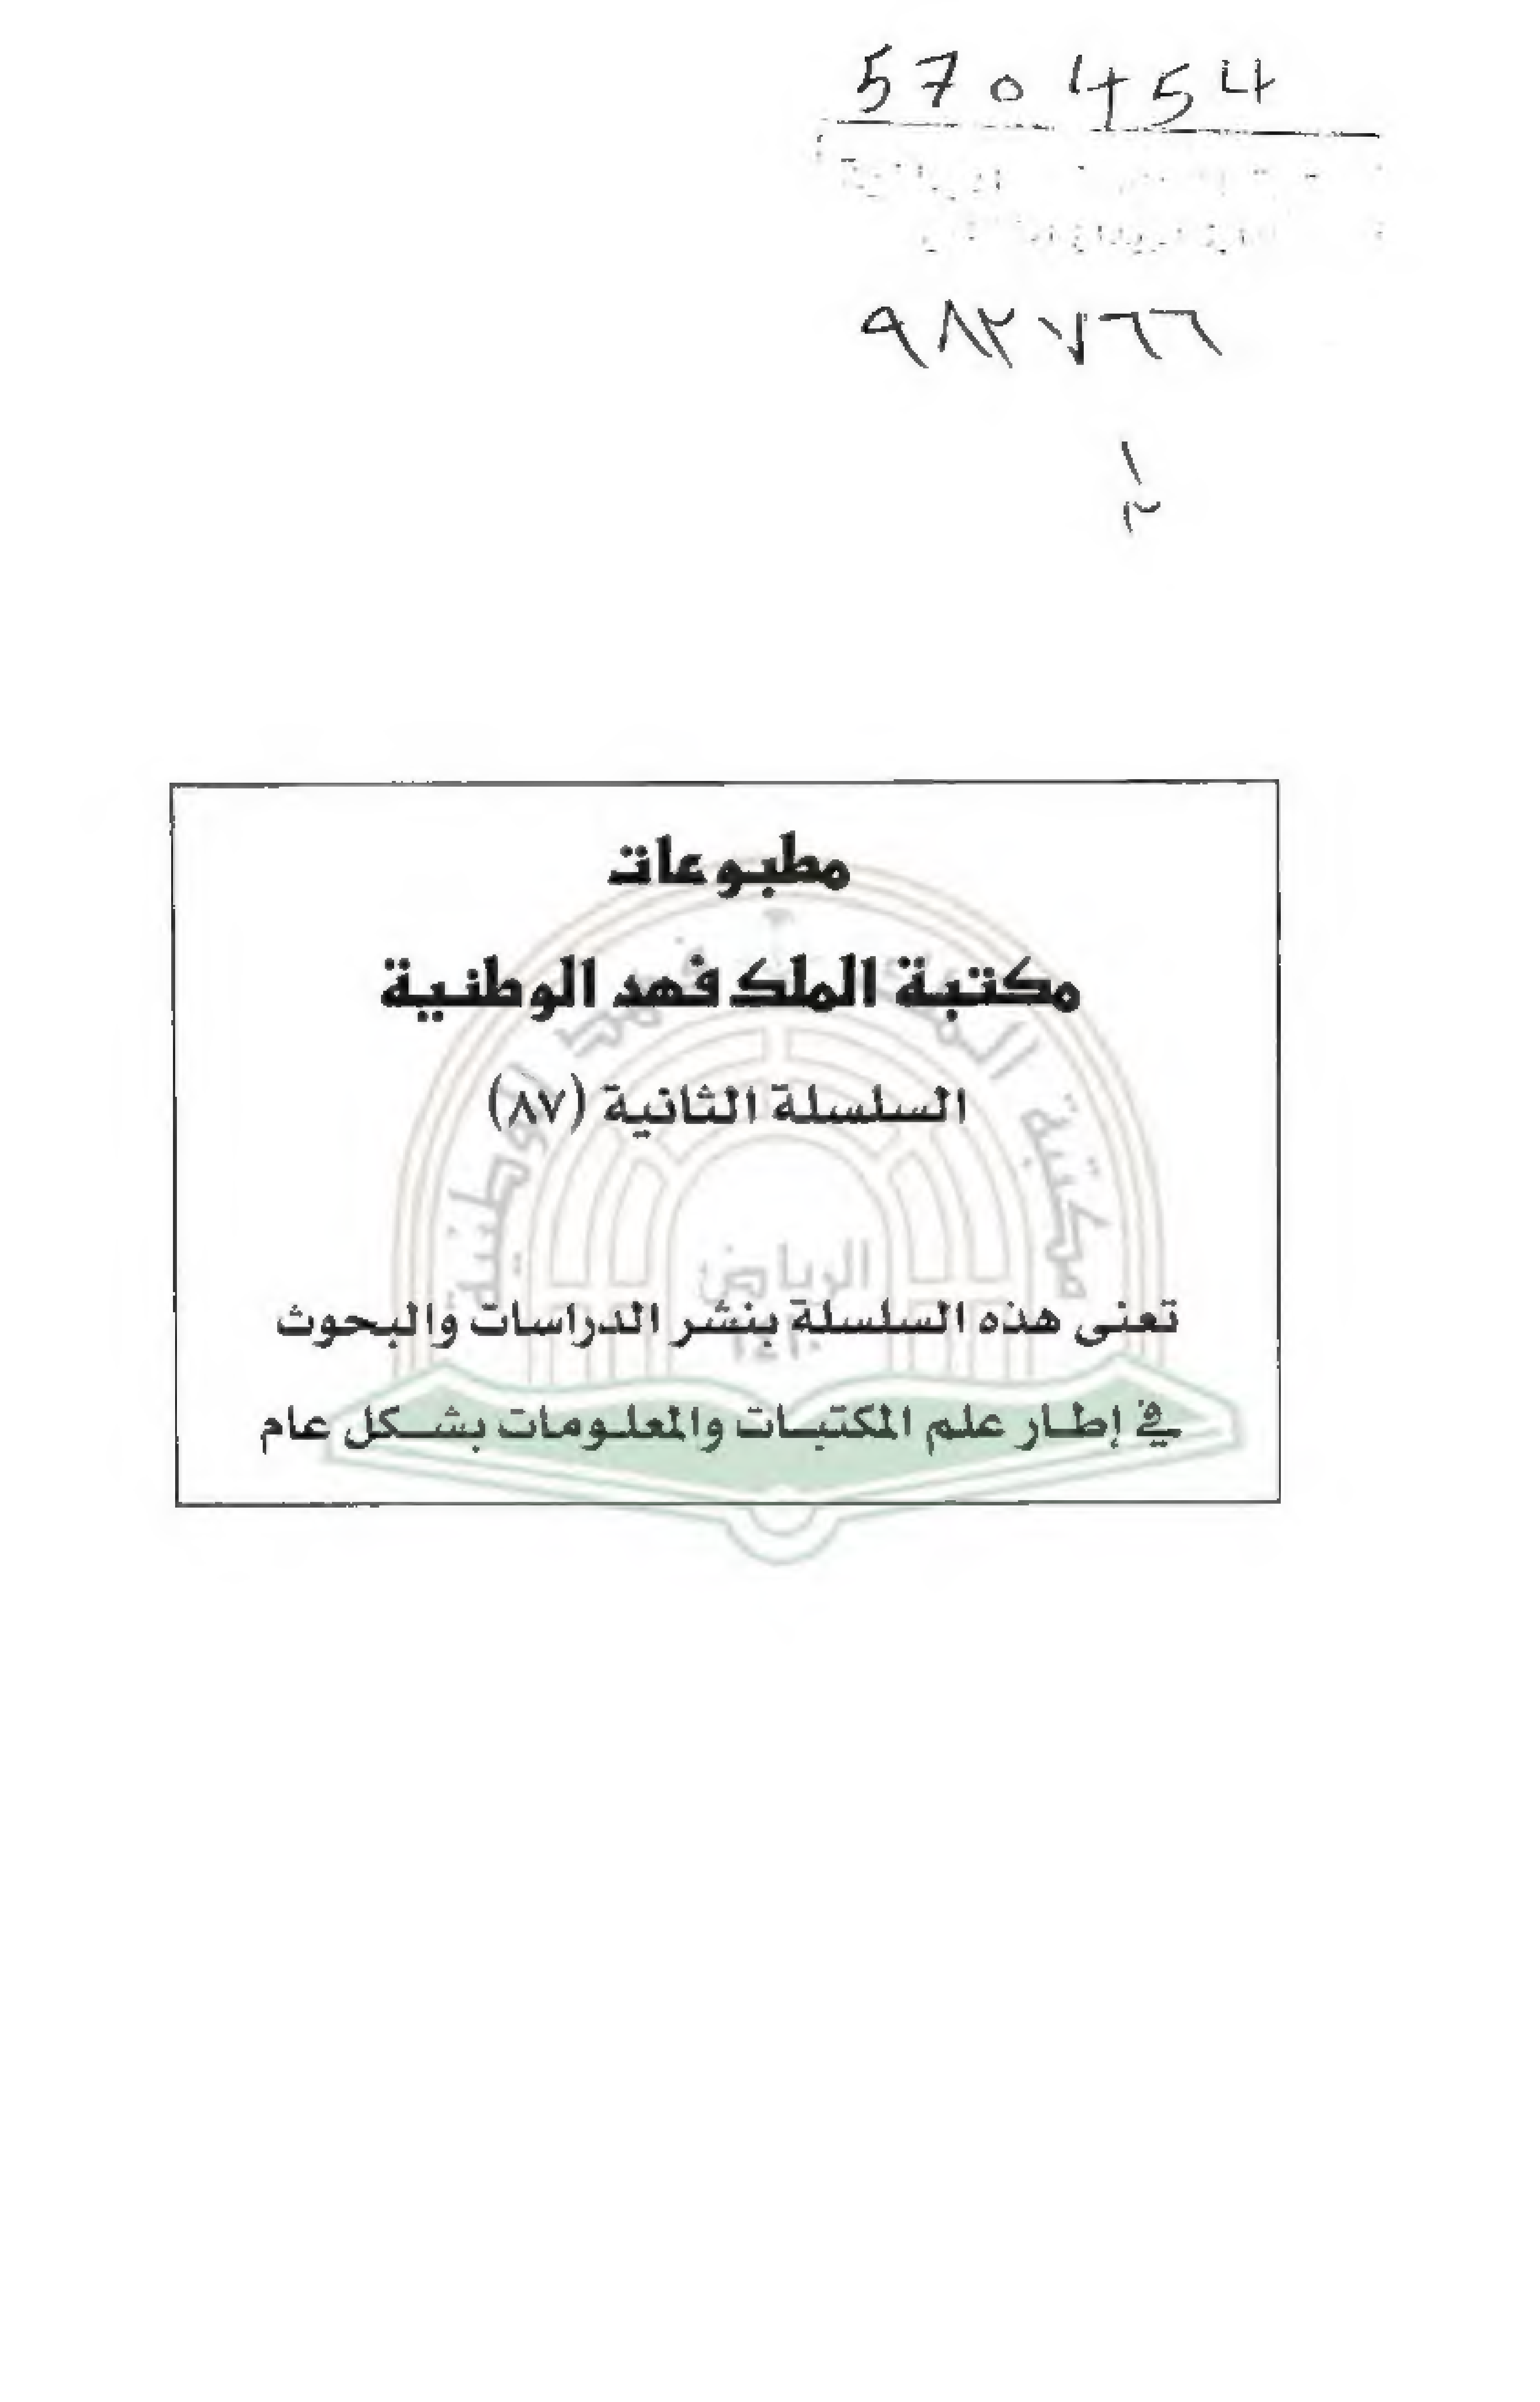 570454
٩٨٢٧٦٦
١
٢
مطبوعات
مكتبة الملك فهد الوطنية
السلسلة الثانية (٨٧)
تعنى هذه السلسلة بنشر الدراسات والبحوث
في إطار علم المكتبات والمعلومات بشكل عام
مكتبة الملك فهد الوطنية
الرياض